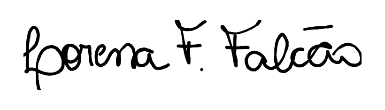 Lorena F. Falcão